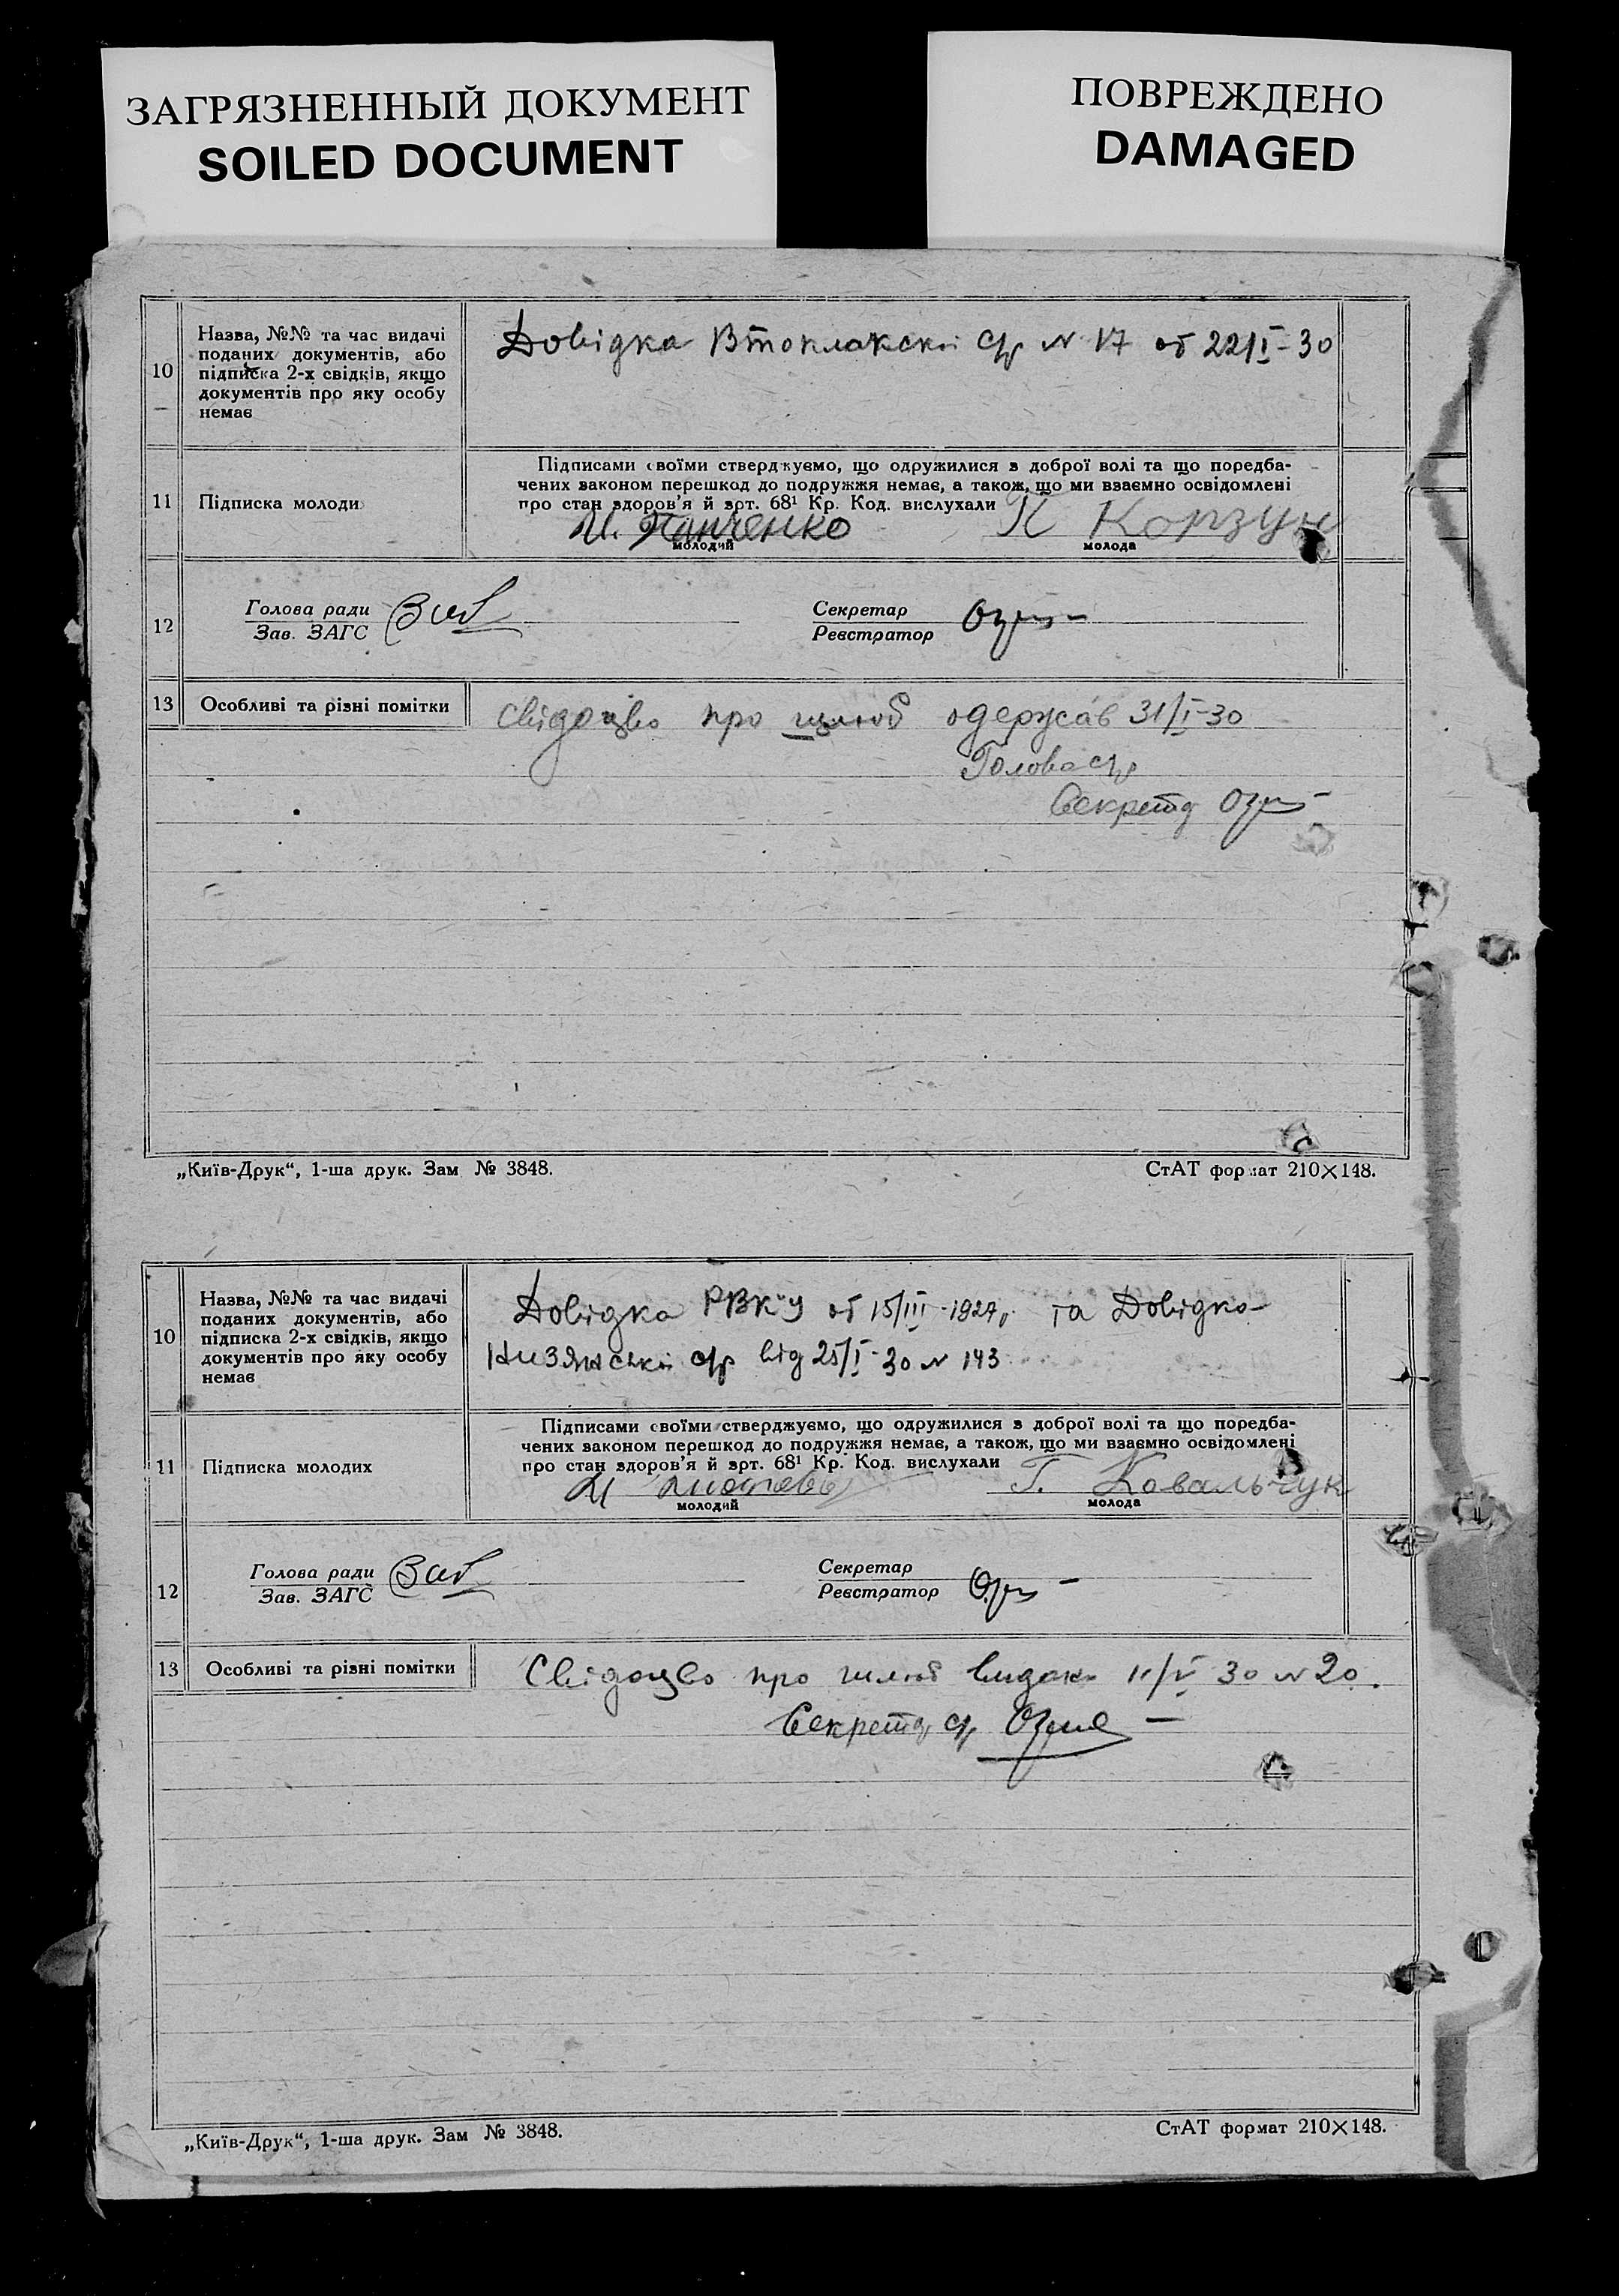 ЗАГРЯЗНЕННЫЙ ДОКУМЕНТ
SOILED DOCUMENT
ПОВРЕЖДЕНО
DAMAGED
10
Назва, №№ та час видачі
поданих документів, або
підписка 2-х свідків, якщо
документів про яку особу
немає
Довідка с/р № 17 от 22/I-30
11
Підписка молоди
Підписами своїми стверджуємо, що одружилися з доброї волі та що поредба-
чених законом перешкод до подружжя немає, а також, що ми взаємно освідомлені
про стан здоров'я й арт. 68¹ Кр. Код. вислухали
И. Панченко
молодий
К Корзун
молода
12
Голова ради
Зав. ЗАГС
Секретар
Реєстратор
13
Особливі та різні помітки
Свідоцво про шлюб одержав 31/I-30
Голова с/р
Секретар
„Київ-Друк“, 1-ша друк. Зам № 3848.
СтАТ формат 210×148.
10
Назва, №№ та час видачі
поданих документів, або
підписка 2-х свідків, якщо
документів про яку особу
немає
Довідка РВК-у от 15/III-1927р. та Довідка
с/р від 25/I-30 № 143
11
Підписка молодих
Підписами своїми стверджуємо, що одружилися з доброї волі та що поредба-
чених законом перешкод до подружжя немає, а також, що ми взаємно освідомлені
про стан здоров'я й арт. 68¹ Кр. Код. вислухали
молодий
Г. Ковальчук
молода
12
Голова ради
Зав. ЗАГС
Секретар
Реєстратор
13
Особливі та різні помітки
Свідоцво про шлюб видано 11/V 30 № 20.
Секретар с/р
„Київ-Друк“, 1-ша друк. Зам № 3848.
СтАТ формат 210×148.